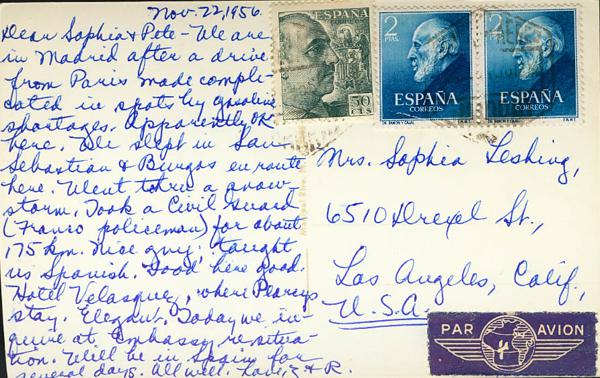 Nov. 22, 1956.
Dear Sophia & Pete - We are
in Madrid after a drive
from Paris made compli-
cated in spots by gasoline
shortages. Apparently OK
here. We slept in San
Sebastian & Burgos en route
here. Went thru a snow-
storm. Took a Civil Guard
(Franco policeman) for about
175 km. Nice guy; taught
us Spanish. Food here good.
Hotel Velasquez, where Pearcys
stay. Elegant. Today we in-
quire at Embassy re situa-
tion. Will be in Spain for
several days. All well. & R.
ESPAÑA
50
CTS
2
PTAS.
ESPAÑA
CORREOS
2
PTAS.
ESPAÑA
CORREOS
Mrs. Sophia Leshing,
6510 Drexel St.,
Los Angeles, Calif.,
U.S.A.
PAR AVION